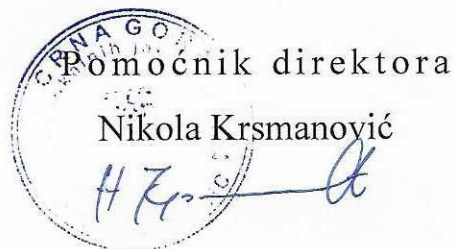 CRNA GO
Pomoćnik direktora
Nikola Krsmanović